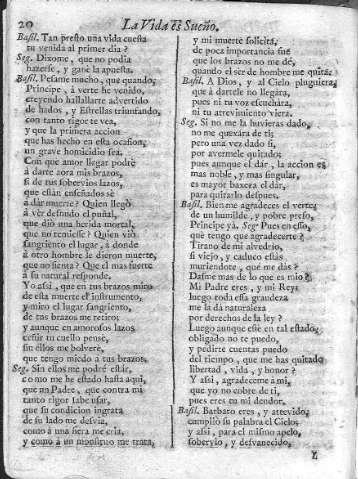 20
La Vida es Sueño.
Basil. Tan presto una vida cuesta
tu venida al primer dia?
Seg. Dixome, que no podia
hazerse, y gané la apuesta.
Basil. Pesame mucho, que quando,
Principe, á verte he venido,
creyendo hallarte advertido
de hados, y Estrellas triunfando,
con tanto rigor te vea,
y que la primera accion
que has hecho en esta ocasion,
un grave homicidio sea.
Con qué amor llegar podré
á darte aora mis brazos,
si de tus sobervios lazos,
que están enseñados sé
á dár muerte? Quien llegó
á vér desnudo el puñal,
que dió una herida mortal,
que no temiesse? Quien vió
sangriento el lugar, á donde
á otro hombre le dieron muerte,
que no sienta? Que el mas fuerte
á su natural responde.
Yo assi, que en tus brazos miro
de esta muerte el instrumento,
y miro el lugar sangriento,
de tus brazos me retiro:
y aunque en amorosos lazos
ceñir tu cuello pensé,
sin ellos me bolveré,
que tengo miedo á tus brazos.
Seg. Sin ellos me podré estár,
como me he estado hasta aqui,
que un Padre, que contra mi
tanto rigor sabe usar,
que su condicion ingrata
de su lado me desvia,
como á una fiera me cria,
y como á un monstruo me trata,
y mi muerte solicita,
de poca importancia fué
que los brazos no me dé,
quando el sér de hombre me quita.
Basil. A Dios, y al Cielo pluguiera,
que á dartele no llegára,
pues ni tu voz escuchára,
ni tu atrevimiento viera.
Seg. Si no me la huvieras dado,
no me quexára de ti;
pero una vez dado sí,
por avermele quitado;
pues aunque el dar, la accion es
mas noble, y mas singular,
es mayor baxeza el dár,
para quitarlo despues.
Basil. Bien me agradeces el verte,
de un humilde, y pobre preso,
Principe yá. Seg. Pues en esso,
qué tengo que agradecerte?
Tirano de mi alvedrio,
si viejo, y caduco estás
muriendote, qué me dás?
Dasme mas de lo que es mio?
Mi Padre eres, y mi Rey;
luego toda esta grandeza
me la dá naturaleza
por derechos de la ley?
Luego aunque esté en tal estado,
obligado no te puedo,
y pedirte cuentas puedo
del tiempo, que me has quitado
libertad, vida, y honor?
Y assi, agradeceme á mi,
que yo no cobre de ti,
pues eres tu mi deudor.
Basil. Barbaro eres, y atrevido,
cumplió su palabra el Cielo;
y assi, para el mismo apelo,
sobervio, y desvanecido,
Y